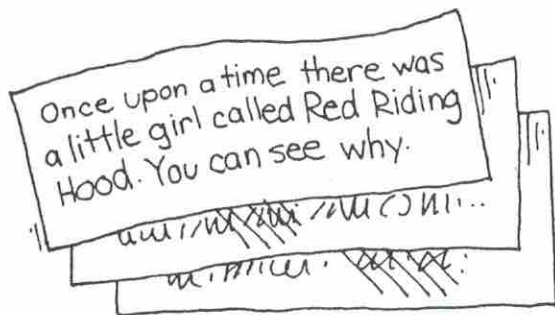 Once upon a time there was
a little girl called Red Riding
Hood. You can see why.